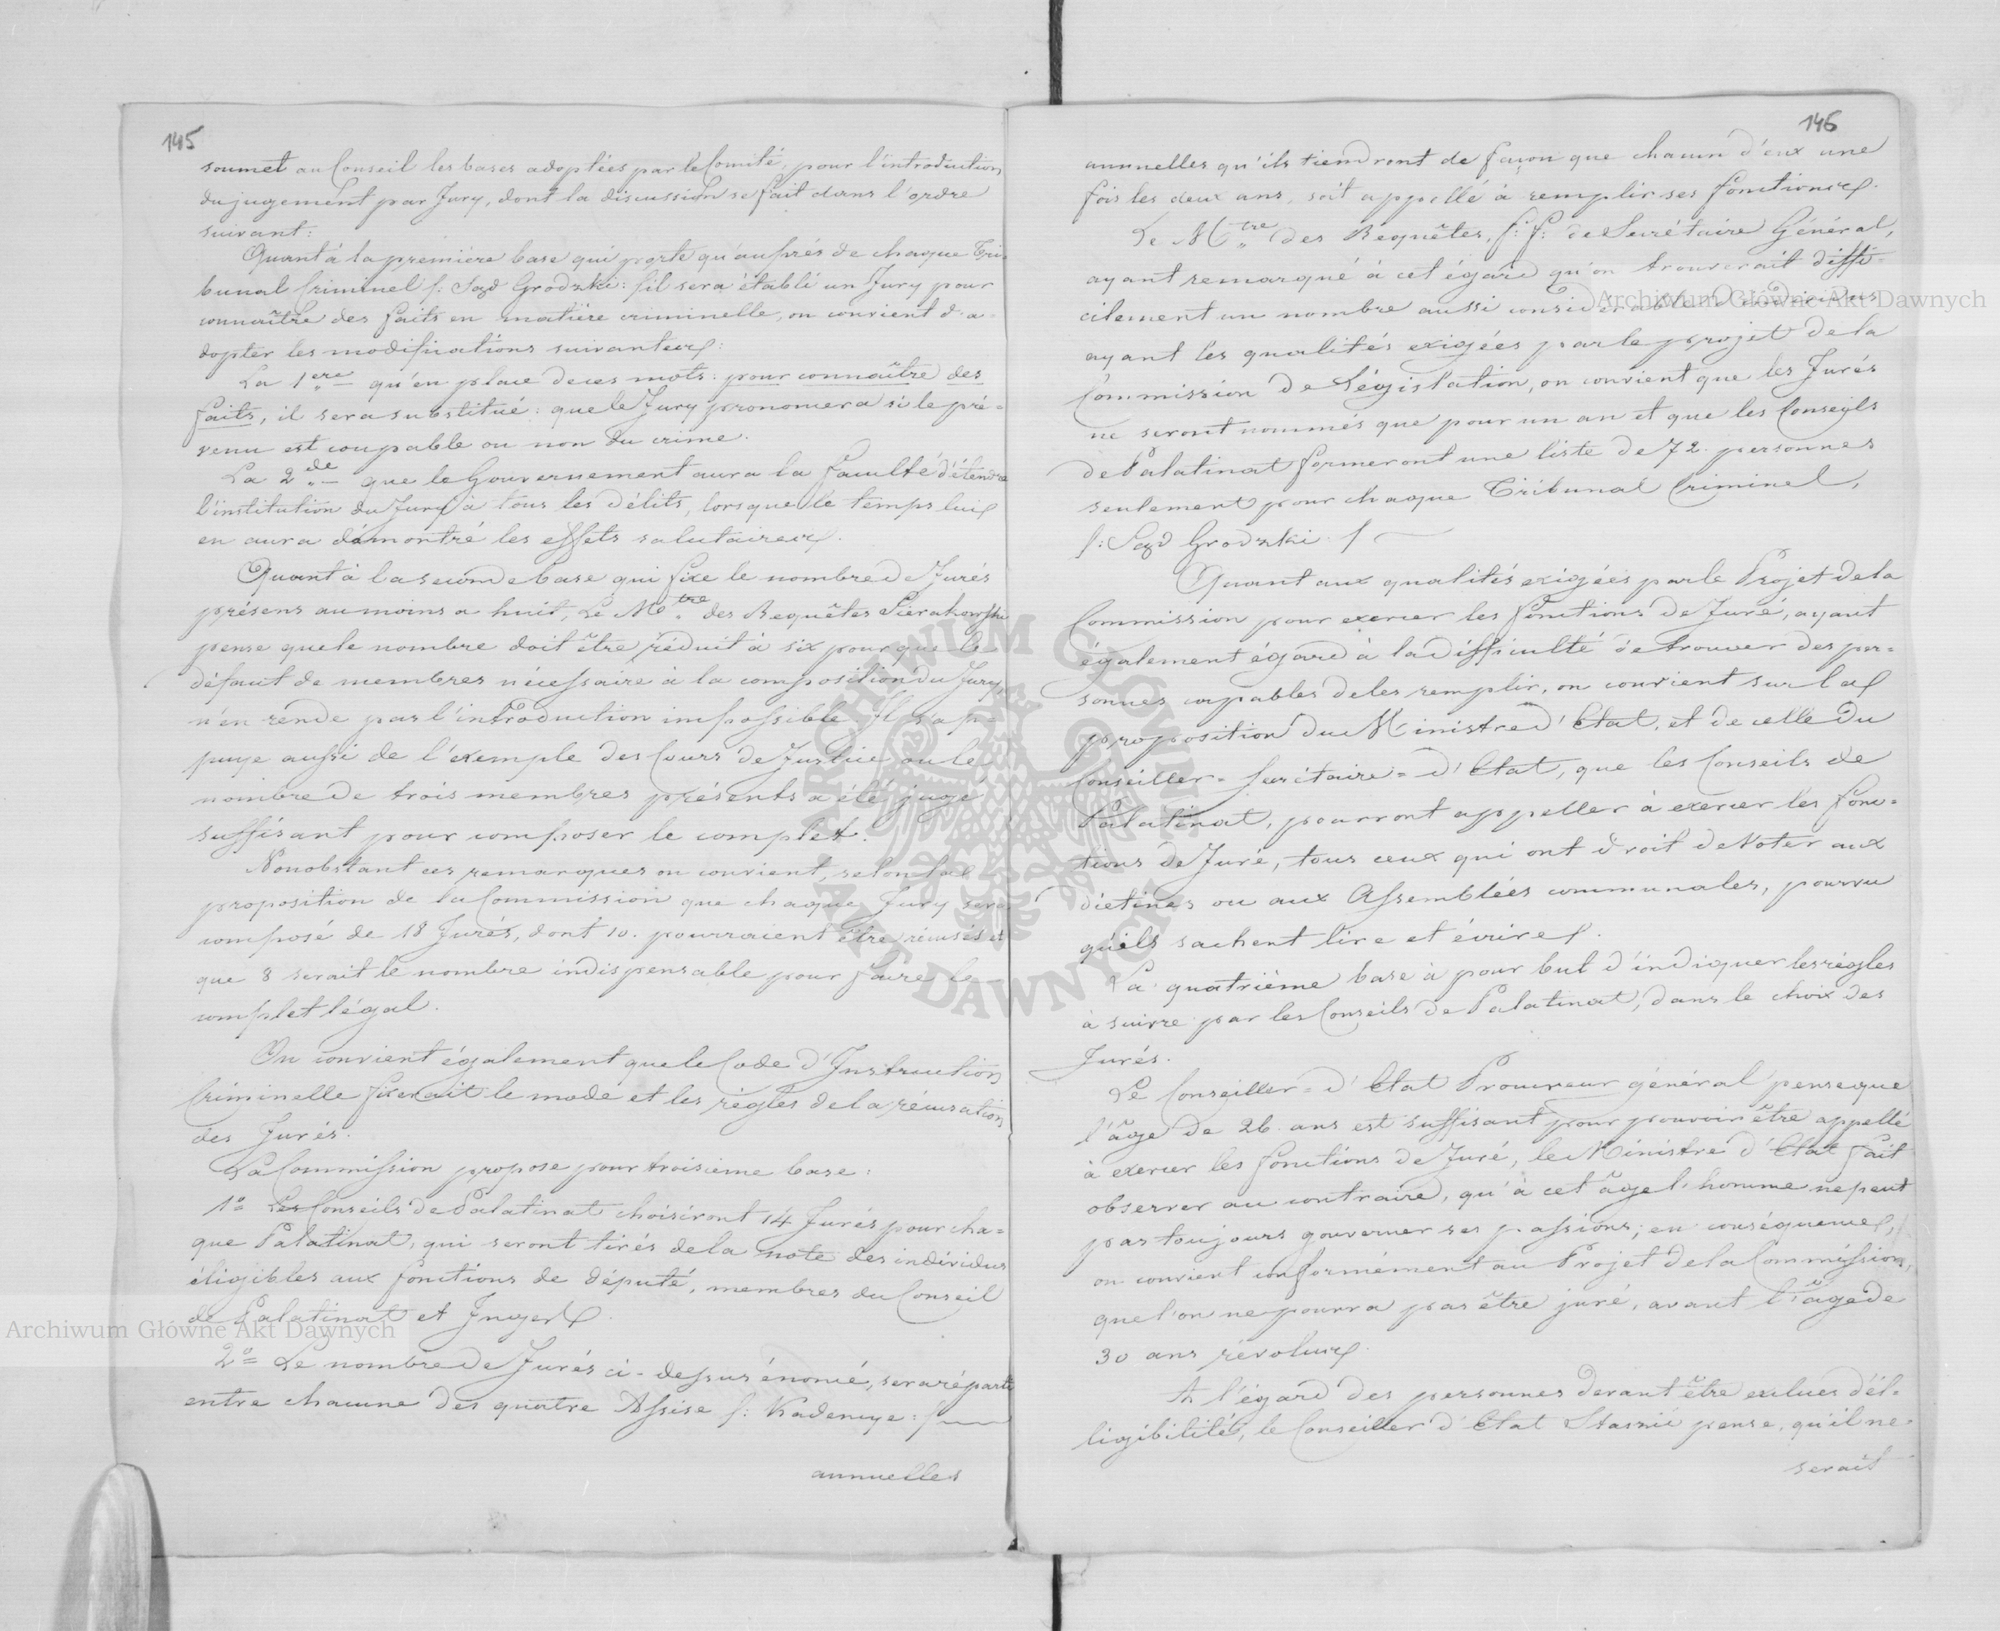 145
soumet au Conseil les bases adoptées par le Comité, pour l'introduction
du jugement par Jury, dont la discussion se fait dans l'ordre
suivant:
Quant à la première base qui porte qu'auprès de chaque Tri-
bunal Criminel /: Sąd Grodzki :/ il sera établi un Jury pour
connaître des faits en matière criminelle, on convient d'a-
dopter les modifications suivantes:
La 1ère qu'en place de ces mots: pour connaître des
faits, il sera substitué: que le Jury prononcera si le pré-
venu est coupable ou non du crime.
La 2de que le Gouvernement aura la faculté d'étendre
l'institution du Jury à tous les délits, lorsque le temps lui
en aura démontré les effets salutaires.
Quant à la seconde base qui fixe le nombre de Jurés
présens au moins a huit, Le Mtre des Requêtes Sierakowski
pense que le nombre doit être réduit à six pour que le
défaut de membres nécessaire à la composition du Jury,
n'en rende pas l'introduction impossible. Il s'ap-
puye aussi de l'exemple des Cours de Justice où le
nombre de trois membres présents a été jugé
suffisant pour composer le complet.
Nonobstant ces remarques on convient, selon la
proposition de la Commission que chaque Jury sera
composé de 18 Jurés, dont 10. pourraient être récusés et
que 8 serait le nombre indispensable pour faire le
complet légal.
On convient également que le Code d'Instruction
Criminelle fixerait le mode et les règles de la récusation
des Jurés.
La Commission propose pour troisième base:
1o Les Conseils de Palatinat choisiront 14 Jurés pour cha-
que Palatinat, qui seront tirés de la note des individus
éligibles aux fonctions de député, membres du Conseil
de Palatinat et Juges.
2o Le nombre de Jurés ci-dessus énoncé, sera réparti
entre chacune des quatre Assise /: Kadencye :/
annuelles
146
annuelles qu'ils tiendront de façon que chacun d'eux une
fois les deux ans, soit appellé à remplir ses fonctions.
Le Mtre des Requêtes, f: f: de Secrétaire Général,
ayant remarqué à cet égard qu'on trouverait diffi-
cilement un nombre aussi considérable d'individus
ayant les qualités exigées par le projet de la
Commission de Législation, on convient que les Jurés
ne seront nommés que pour un an et que les Conseils
de Palatinat formeront une liste de 72 personnes
seulement pour chaque Tribunal Criminel,
/: Sąd Grodzki :/
Quant aux qualités exigées par le Projet de la
Commission pour exercer les fonctions de Juré, ayant
également égard à la difficulté de trouver des per-
sonnes capables de les remplir, on convient sur la
proposition du Ministre d'Etat, et de celle du
Conseiller-Secrétaire-d'Etat, que les Conseils de
Palatinat, pourront appeller à exercer les fonc-
tions de Juré, tous ceux qui ont droit de Voter aux
diétines ou aux Assemblées communales, pourvu
qu'ils sachent lire et écrire.
La quatrième base à pour but d'indiquer les règles
à suivre par les Conseils de Palatinat, dans le choix des
Jurés.
Le Conseiller-d'Etat Procureur général pense que
l'âge de 26 ans est suffisant pour pouvoir être appellé
à exercer les fonctions de Juré, le Ministre d'Etat fait
observer au contraire, qu'à cet âge l'homme ne peut
pas toujours gouverner ses passions; en conséquence,
on convient conformément au Projet de la Commission,
que l'on ne pourra pas être juré, avant l'âge de
30 ans révolus.
A l'égard des personnes devant être exclues d'él-
ligibilité, le Conseiller d'Etat Staszic pense, qu'il ne
serait
Archiwum Główne Akt Dawnych
Archiwum Główne Akt Dawnych
ARCHIWUM GŁÓWNE AKT DAWNYCH